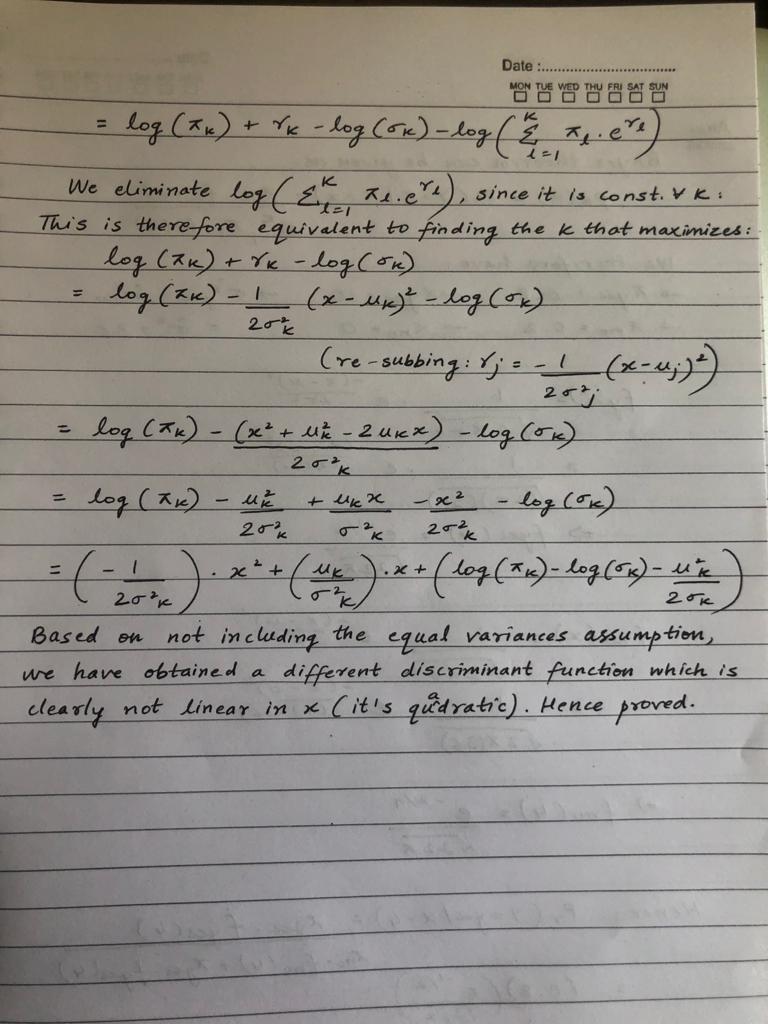 Date :
MON TUE WED THU FRI SAT SUN
= log(πₖ) + rₖ - log(σₖ) - log(Σ_{l=1}^{K} π_l . e^{r_l})
We eliminate log(Σ_{l=1}^{K} π_l . e^{r_l}), since it is const. ∀ K :
This is therefore equivalent to finding the k that maximizes :
log(πₖ) + rₖ - log(σₖ)
= log(πₖ) - 1/(2σ²ₖ) (x - μₖ)² - log(σₖ)
(re-subbing : r_j = - 1/(2σ²_j) (x - μ_j)²)
= log(πₖ) - (x² + μ²ₖ - 2μₖx)/(2σ²ₖ) - log(σₖ)
= log(πₖ) - μ²ₖ/(2σ²ₖ) + μₖx/σ²ₖ - x²/(2σ²ₖ) - log(σₖ)
= (- 1/(2σ²ₖ)) . x² + (μₖ/σ²ₖ) . x + (log(πₖ) - log(σₖ) - μ²ₖ/(2σₖ))
Based on not including the equal variances assumption,
we have obtained a different discriminant function which is
clearly not linear in x (it's quadratic). Hence proved.